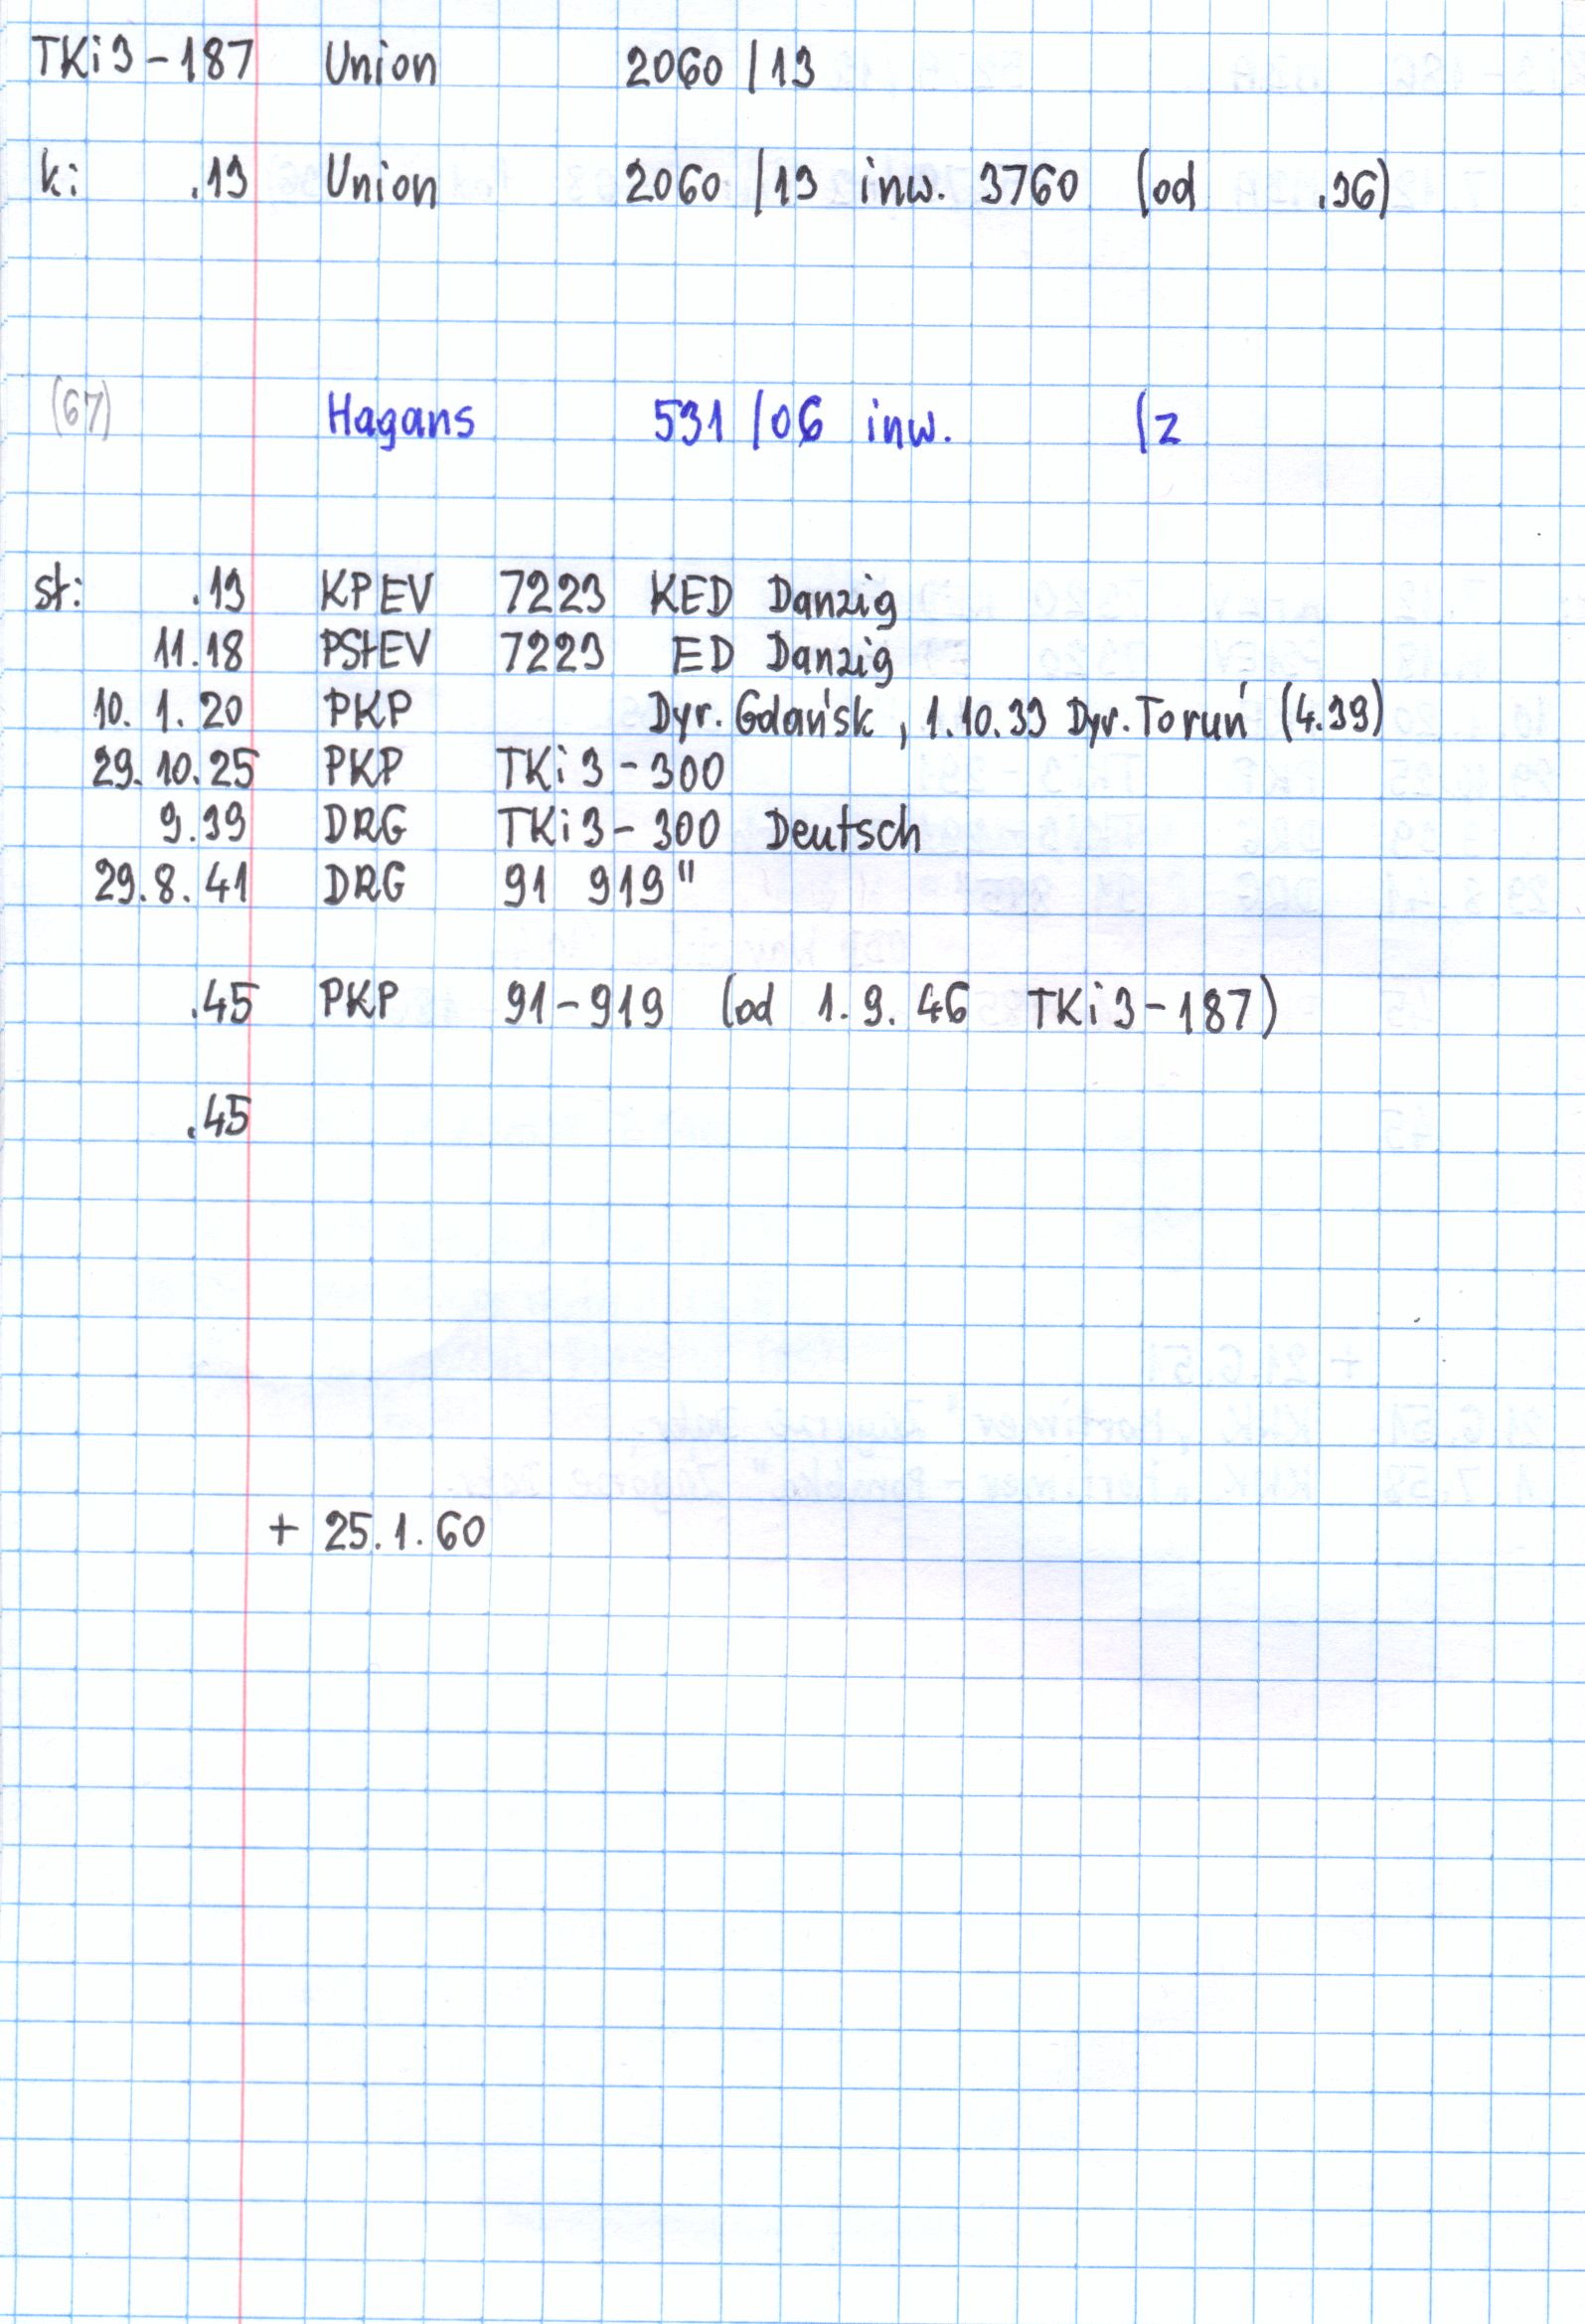 TKi3-187 Union 2060/13
k: .13 Union 2060/13 inw. 3760 (od .36)
(67) Hagans 531/06 inw. (z
st: .13 KPEV 7223 KED Danzig
11.18 PStEV 7223 ED Danzig
10. 1. 20 PKP Dyr. Gdańsk, 1.10.33 Dyr. Toruń (4.39)
29. 10. 25 PKP TKi3-300
9.39 DRG TKi3-300 Deutsch
29. 8. 41 DRG 91 919"
.45 PKP 91-919 (od 1. 9. 46 TKi3-187)
.45
+ 25. 1. 60